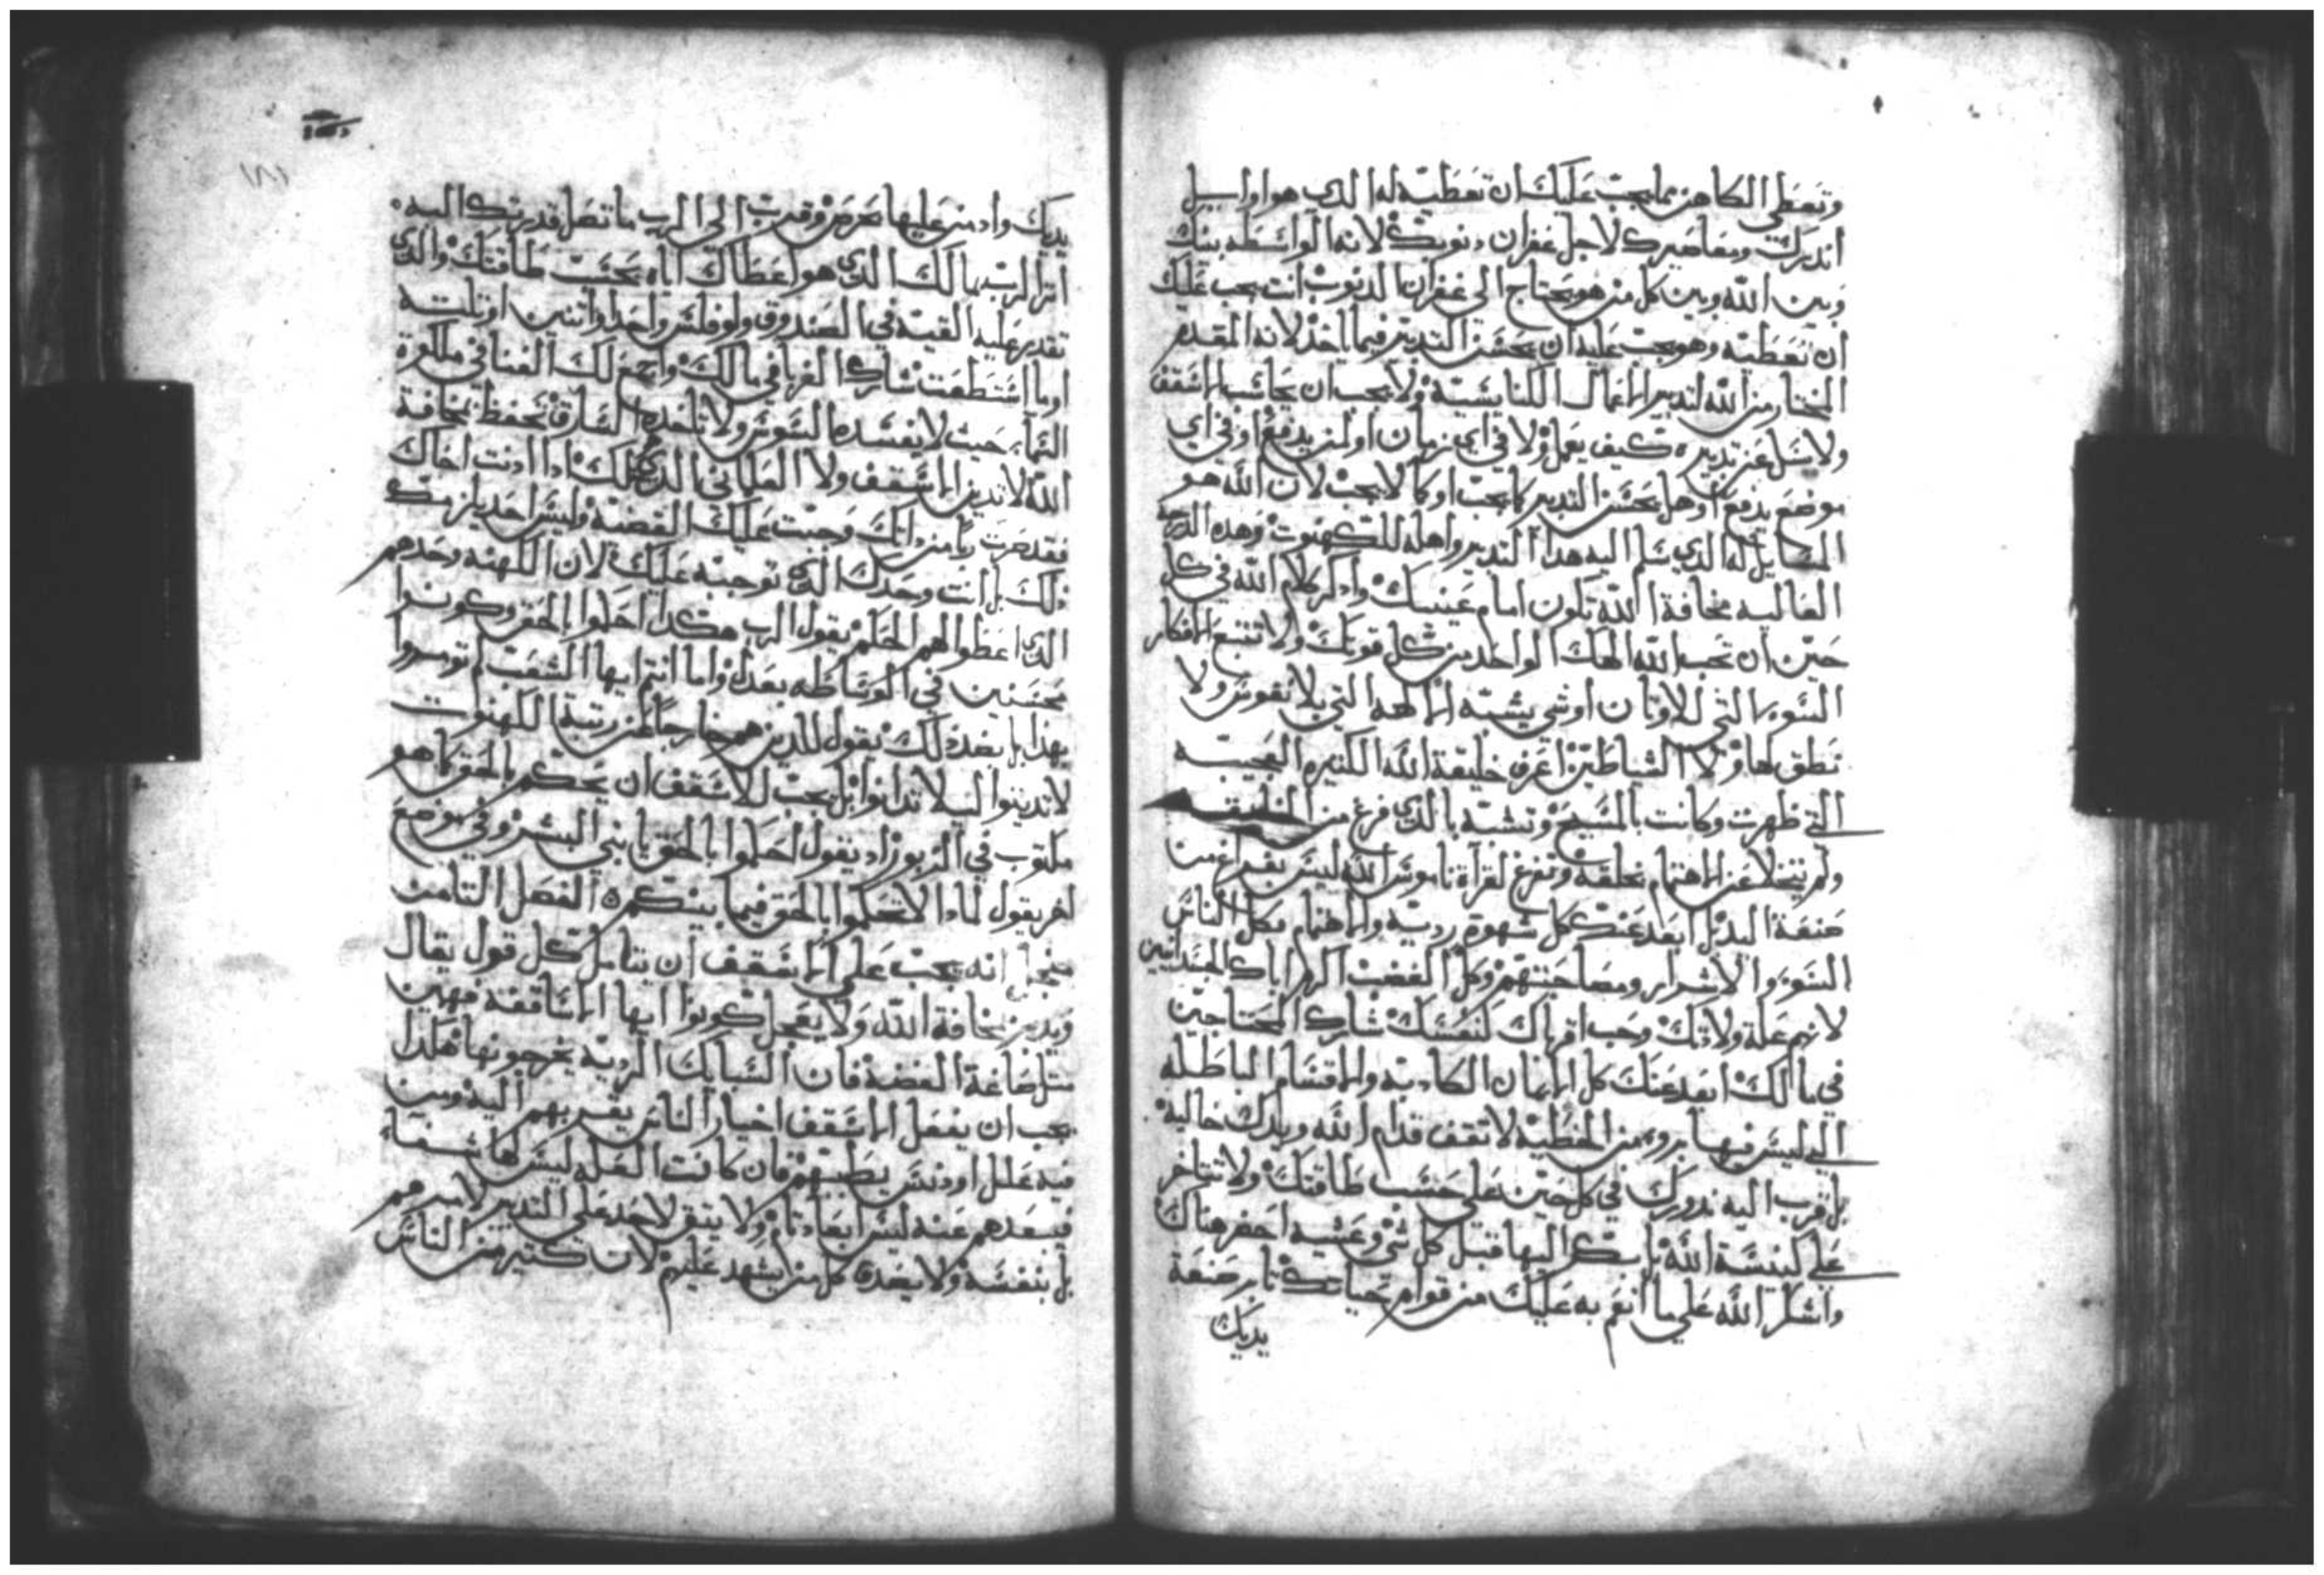 وتعطي الكاهن ما يجب عليك ان تعطيه له الذي هو اوايل
اندرك ومعاصيرك لاجل غفران دنوبك لانه الواسطه بينك
وبين الله وبين كل من هو يحتاج الي غفران الدنوب انت يجب عليك
ان تعطيه وهو يجب عليه ان يحسن التدبير فيما اخذ لانه المقدم
المختار من الله لتدبير الاعمال الكنايسية ولا يجب ان يحاسب الاسقف
ولا يسل عن تدبيره كيف يعمل ولا في اي زمان او لمن يدفع او في اي
موضع يدفع او هل يحسن التدبير كما يجب او كما لا يجب لان الله هو
المسايل له الذي سلم اليه هدا التدبير واهله للكهنوت وهده الدرجة
العاليه مخافة الله تكون امام عينيك وادكر كلام الله في كل
حين ان تحب الله الهك الواحد من كل قوتك ولا تتبع الافكار
السوء التي للاوتان او شي يشبه الالهه التي بلا نفوس ولا
نطق لها ولا الشياطين اعرف خليقة الله الكثيره العجيبه
التي ظهرت وكانت بالمسيح وتشبه بالذي فرغ من الخليقه
ولم يتخلا عن الاهتمام بخلقه وتفرغ لقرآة ناموس الله ليس بفراغ من
صنعة اليد بل ابعد عنك كل شهوة رديه والاهتمام بكل الناس
السوء والاشرار ومصاحبتهم وكل الغضب اكرم اباك الجسدانيين
لانهم علة ولادتك وحب اقرباك كنفسك شارك المحتاجين
في مالك ابعد عنك كل الايمان الكادبه والاقسام الباطله
التي ليس فيها بروء من الخطية لا تقف قدام الله ويدك خالية
بل قرب اليه ندورك في كل حين علي حسب طاقتك ولا تتاخر
علي كنيسة الله باكر اليها قبل كل شي وعشيه احضر هناك
واشكر الله علي ما انعم به عليك من قوام حياتك تابر صنعة
يديك
يديك وادمن عليها بحرص وقرب الي الرب ما تصل قدرتك اليه
اكرم الرب بمالك الذي هو اعطاك اياه بحسب طاقتك والذي
تقدر عليه القيه في الصندوق ولو فلس واحد او اتنين او تلته
او ما استطعت شارك الغربا في مالك واجمع لك الغنا في ملكوة
السماء حيث لا يفسده السوس ولا تاخده السارق تحفظ بمخافة
الله لا تدين الاسقف ولا العلماني الذي مثلك ادا ادنت اخاك
فقد صرت ديان وجبت عليك القضية وليس احد يلزمك
دلك بل انت وحدك الذي توجبه عليك لان الكهنه وحدهم
الذي اعطوا لهم الحكم يقول الرب هكدا احكموا بالحق وكونوا
محسنين في الوساطه بعدل واما انتم ايها الشعب لم توصوا
بهدا بل بضد دلك يقول للدين هم خارجا من رتبة الكهنوت
لا تدينوا ليلا تدانوا بل يجب للاسقف ان يحكم بالحق كما هو
مكتوب في الزبور اد يقول احكموا بالحق يا بني البشر وفي موضع
اخر يقول لمادا لا تحكموا بالحق فيما بينكم الفصل التامن
انه يجب علي الاسقف ان يتامل كل قول يقال
ويدين بمخافة الله ولا يعجل كونوا ايها الاساقفة فهمين
متل صاغة الفضة فان السبايك الرديه يخرجونها هكدا
يجب ان يفعل الاسقف اخيار الناس يقربهم اليه ومن
فيه علل او دنس يطبهم فان كانت العله ليس لها شفاء
فيبعدهم عنه ليس ابعاد تام ولا يتق لاحد علي التدبير لامرهم
بل بنفسه ولا يصدق كل من يشهد عليهم لان كتير من الناس